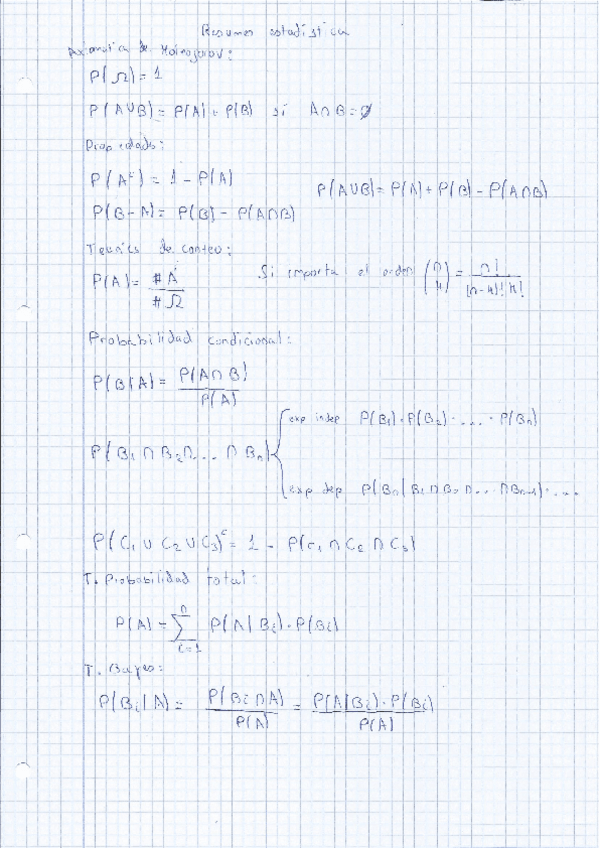 Resumen estadistica
Axiomatica de Kolmogorov:
P(Ω) = 1
P(A∪B) = P(A) + P(B) si A∩B = ∅
Propiedades:
P(Aᶜ) = 1 - P(A)
P(A∪B) = P(A) + P(B) - P(A∩B)
P(B-A) = P(B) - P(A∩B)
Tecnics de conteo:
P(A) = #A / #Ω Si importa el orden (n k) = n! / (n-k)! k!
Probabilidad condicional:
P(B|A) = P(A∩B) / P(A)
exp indep P(B₁)·P(B₂)·....·P(Bₙ)
P(B₁∩B₂∩...∩Bₙ)
exp dep P(Bₙ|B₁∩B₂∩...∩Bₙ₋₁)·...
P(C₁∪C₂∪C₃)ᶜ = 1 - P(C₁∩C₂∩C₃)
T. Probabilidad total:
P(A) = ∑ⁿᵢ₌₁ P(A|Bᵢ)·P(Bᵢ)
T. Bayes:
P(Bᵢ|A) = P(Bᵢ∩A) / P(A) = P(A|Bᵢ)·P(Bᵢ) / P(A)